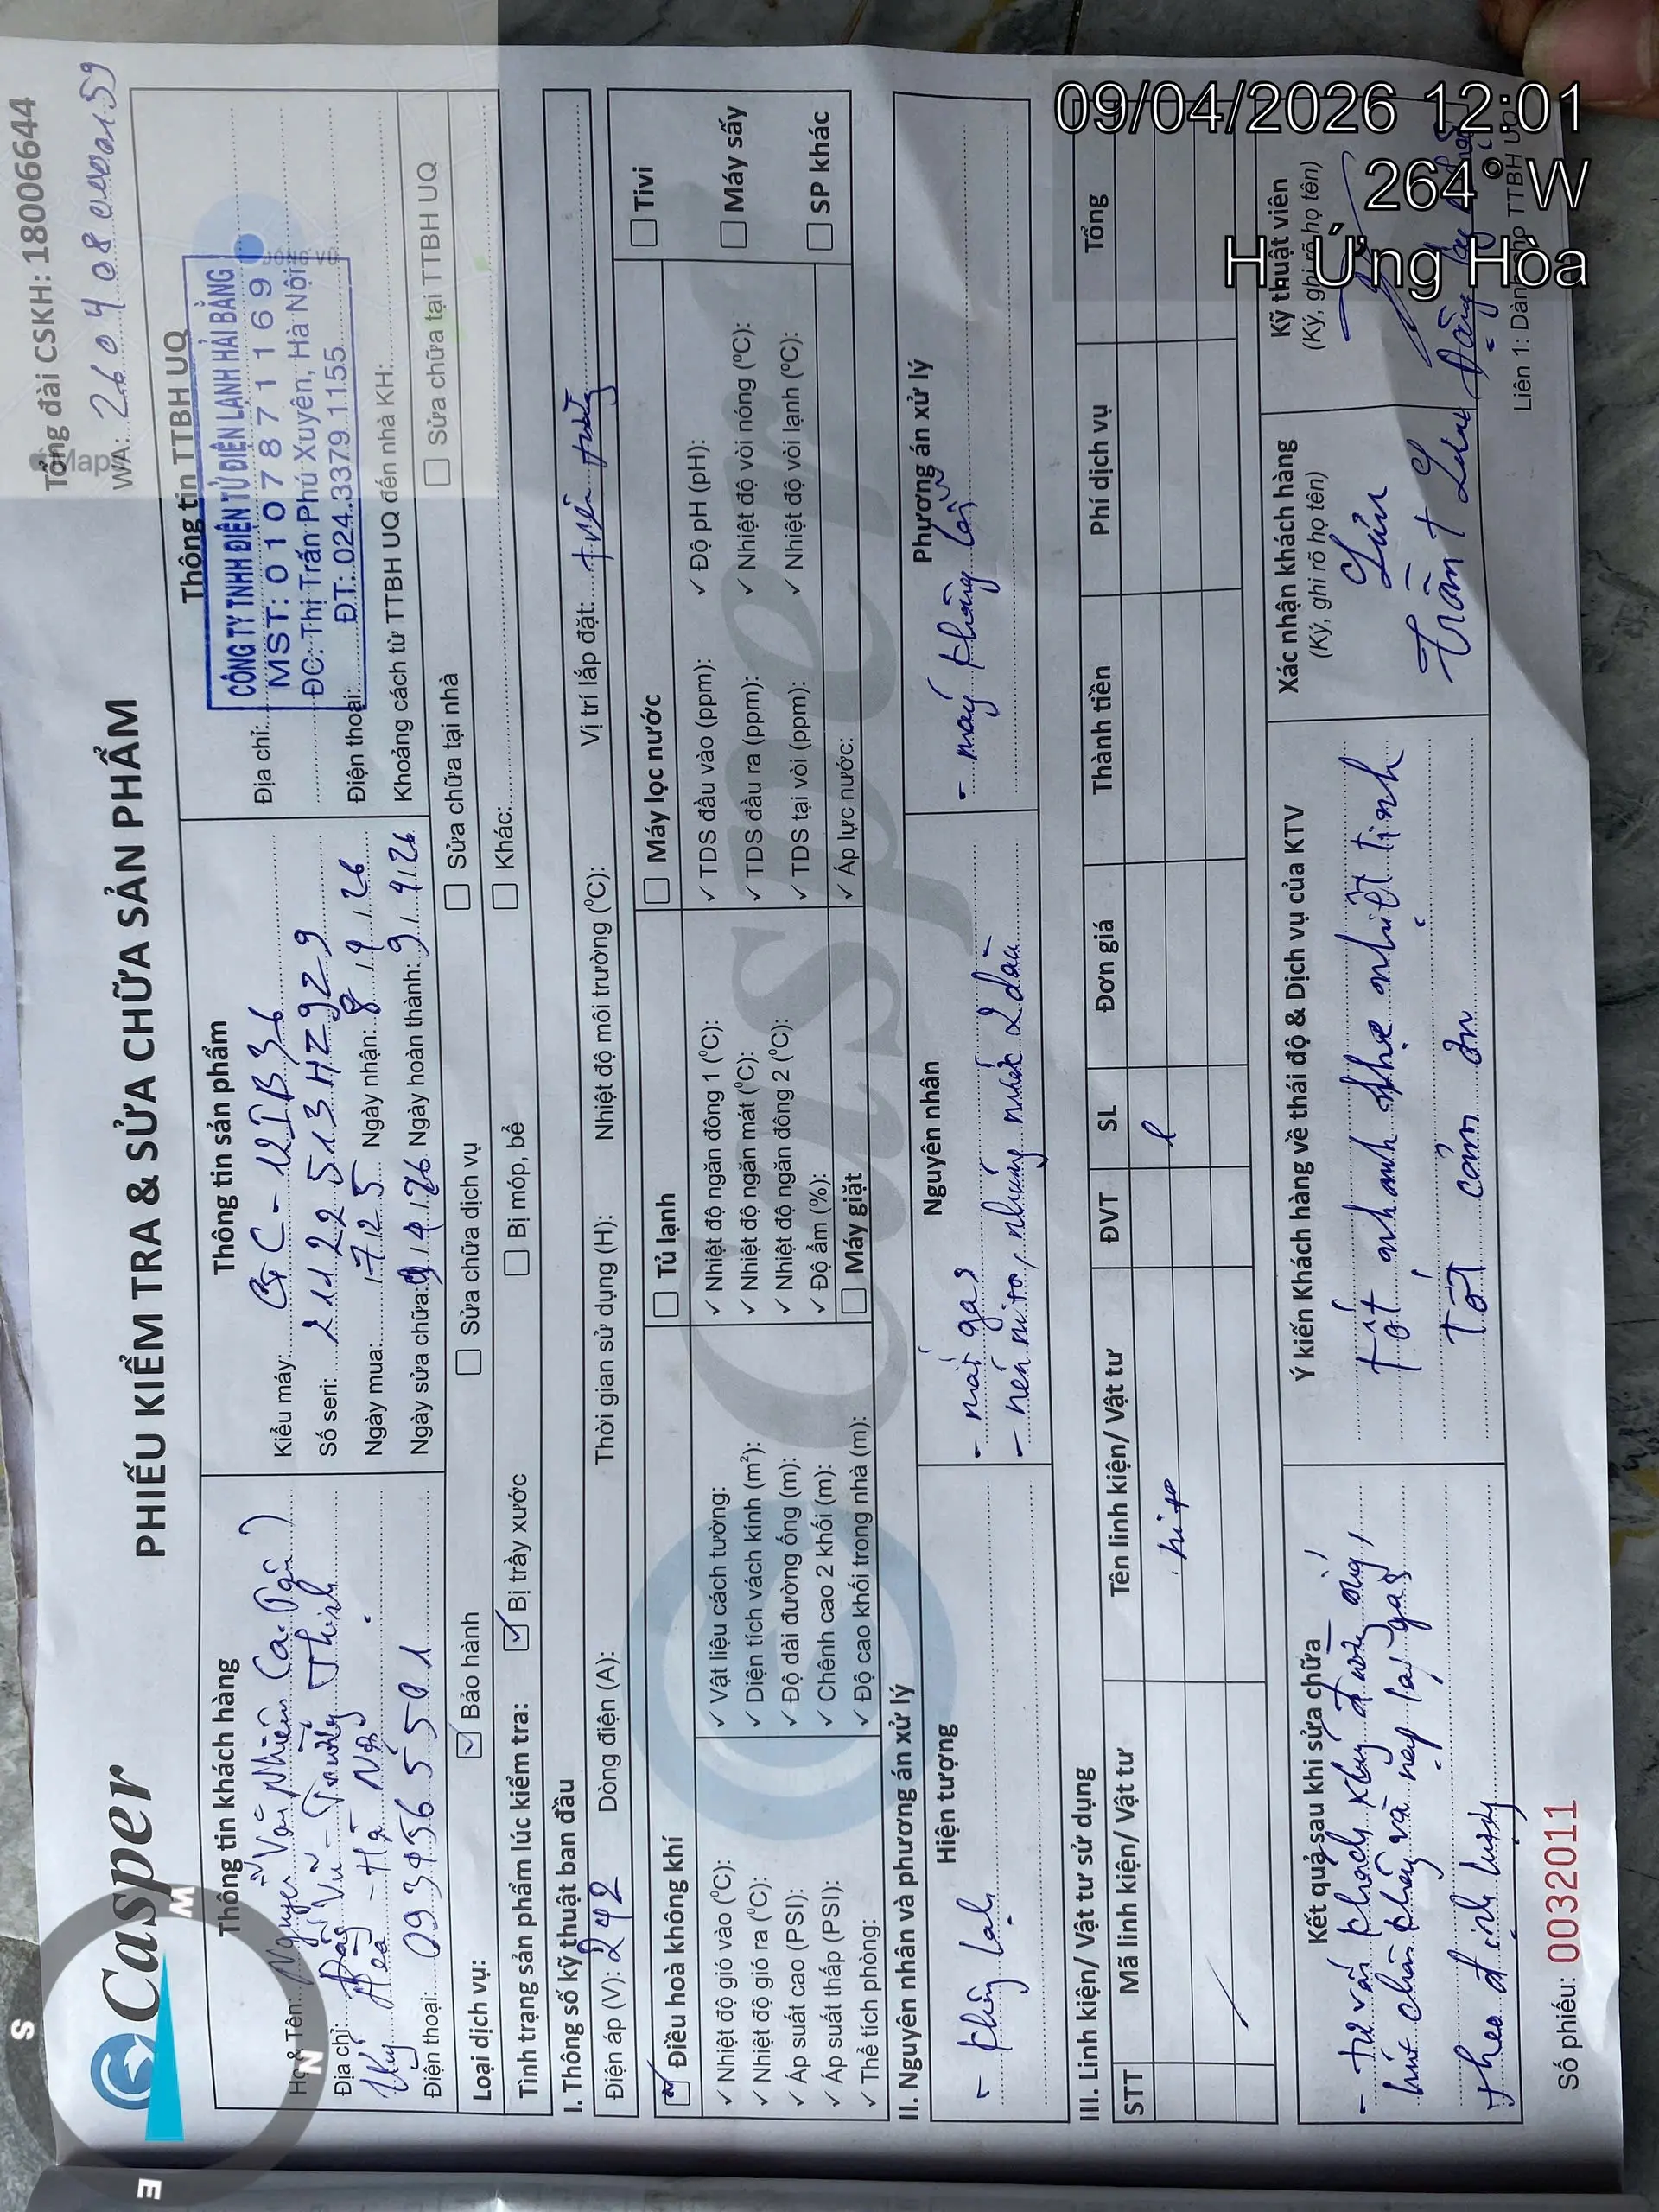 Casper
Tổng đài CSKH: 18006644
PHIẾU KIỂM TRA & SỬA CHỮA SẢN PHẨM
WA: 260408
Thông tin khách hàng
Họ & Tên: Nguyễn Văn Nhiên
Địa chỉ: Trường Thịnh
Hoà - Hà Nội
Điện thoại: 0393656501
Thông tin sản phẩm
Kiểu máy: GC-12IB36
Số seri: 2112513HZ929
Ngày mua: Ngày nhận: 8/4/26
Ngày sửa chữa: 9/4/26 Ngày hoàn thành: 9/4/26
Thông tin TTBH UQ
CÔNG TY TNHH ĐIỆN TỬ ĐIỆN LẠNH HẢI BẰNG
Địa chỉ:
MST: 0107871169
ĐC: Thị Trấn Phú Xuyên, Hà Nội
Điện thoại:
ĐT: 024.3379.1155
Khoảng cách từ TTBH UQ đến nhà KH:
Loại dịch vụ: Bảo hành Sửa chữa dịch vụ Sửa chữa tại nhà Sửa chữa tại TTBH UQ
Tình trạng sản phẩm lúc kiểm tra: Bị trầy xước Bị móp, bể Khác:
I. Thông số kỹ thuật ban đầu
Điện áp (V): 242 Dòng điện (A): Thời gian sử dụng (H): Nhiệt độ môi trường (ºC): Vị trí lắp đặt: trên tường
Điều hoà không khí
✓ Nhiệt độ gió vào (ºC):
✓ Nhiệt độ gió ra (ºC):
✓ Áp suất cao (PSI):
✓ Áp suất thấp (PSI):
✓ Thể tích phòng:
✓ Vật liệu cách tường:
✓ Diện tích vách kính (m²):
✓ Độ dài đường ống (m):
✓ Chênh cao 2 khối (m):
✓ Độ cao khối trong nhà (m):
Tủ lạnh
✓ Nhiệt độ ngăn đông 1 (ºC):
✓ Nhiệt độ ngăn mát (ºC):
✓ Nhiệt độ ngăn đông 2 (ºC):
✓ Độ ẩm (%):
Máy giặt
Máy lọc nước
✓ TDS đầu vào (ppm):
✓ TDS đầu ra (ppm):
✓ TDS tại vòi (ppm):
✓ Áp lực nước:
✓ Độ pH (pH):
✓ Nhiệt độ vòi nóng (ºC):
✓ Nhiệt độ vòi lạnh (ºC):
Tivi
Máy sấy
SP khác
II. Nguyên nhân và phương án xử lý
Hiện tượng
- không lạnh
Nguyên nhân
- mất gas
- nén nito, nhúng nước 2 dàn
Phương án xử lý
- máy không lỗi
III. Linh kiện/ Vật tư sử dụng
STT Mã linh kiện/ Vật tư Tên linh kiện/ Vật tư ĐVT SL Đơn giá Thành tiền Phí dịch vụ Tổng
nito
Kết quả sau khi sửa chữa
- tư vấn khách
hút chân không và nạp lại gas
theo định lượng
Ý kiến Khách hàng về thái độ & Dịch vụ của KTV
Tốt nhiệt tình
Tốt cảm ơn
Xác nhận khách hàng
(Ký, ghi rõ họ tên)
Kỹ thuật viên
(Ký, ghi rõ họ tên)
Số phiếu: 0032011
Liên 1: Dành cho TTBH UQ
09/04/2026 12:01
264° W
H. Ứng Hòa
S
W
N
E
Maps